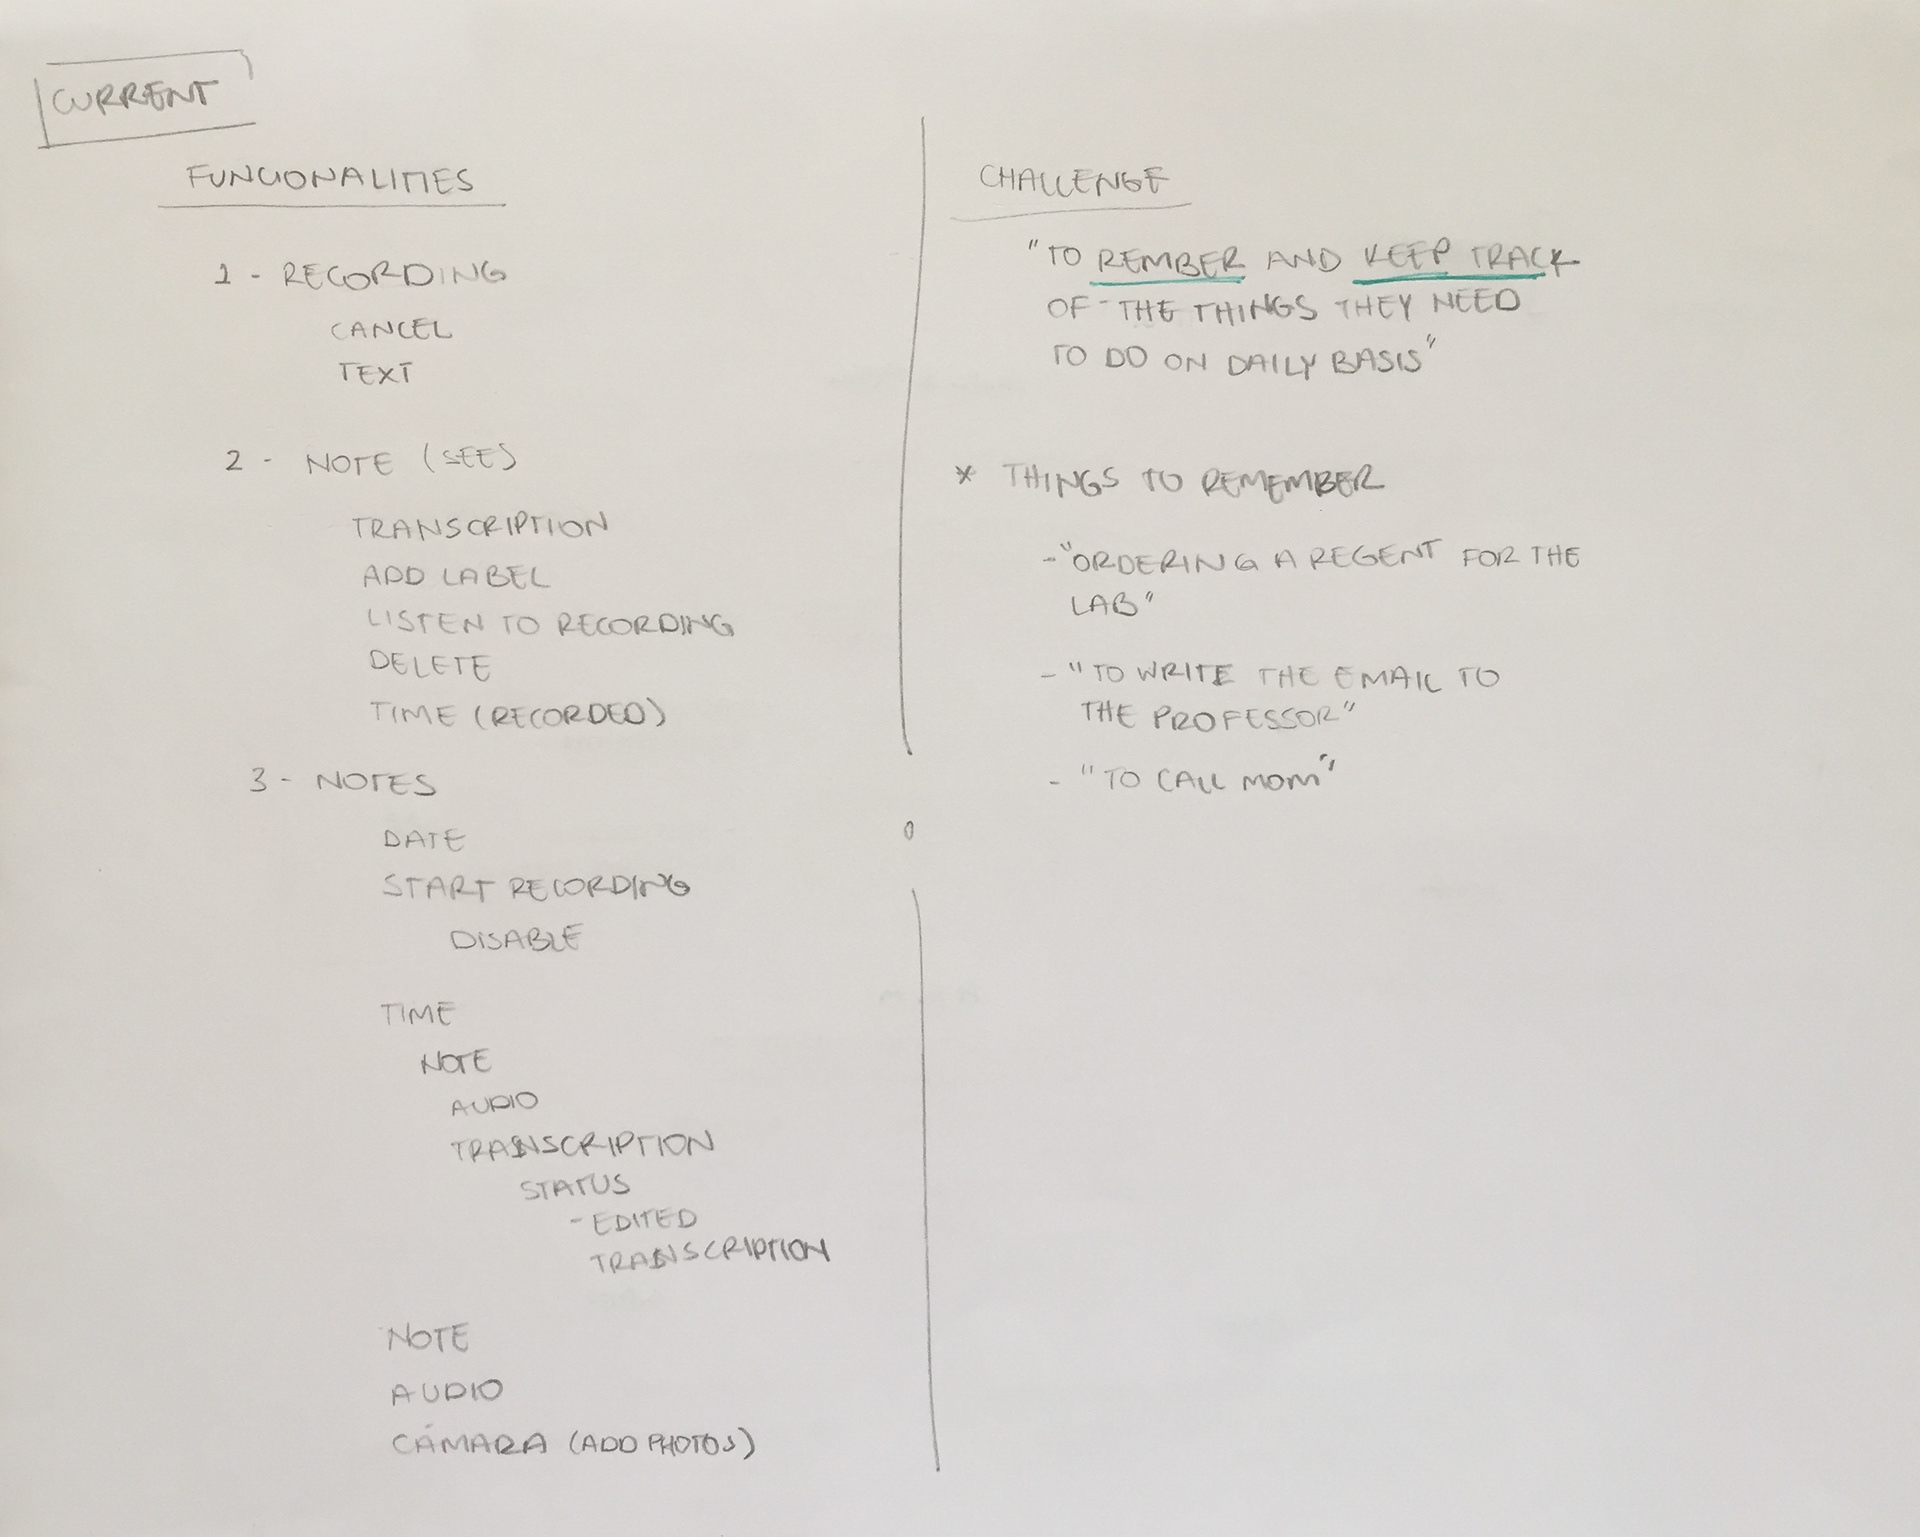 CURRENT
FUNCIONALITIES
1 - RECORDING
CANCEL
TEXT
2 - NOTE (SEE)
TRANSCRIPTION
ADD LABEL
LISTEN TO RECORDING
DELETE
TIME (RECORDED)
3 - NOTES
DATE
START RECORDING
DISABLE
TIME
NOTE
AUDIO
TRANSCRIPTION
STATUS
- EDITED
TRANSCRIPTION
NOTE
AUDIO
CÁMARA (ADD PHOTOS)
CHALLENGE
"TO REMBER AND KEEP TRACK
OF THE THINGS THEY NEED
TO DO ON DAILY BASIS"
* THINGS TO REMEMBER
- "ORDERING A REGENT FOR THE
LAB"
- "TO WRITE THE EMAIL TO
THE PROFESSOR"
- "TO CALL MOM"